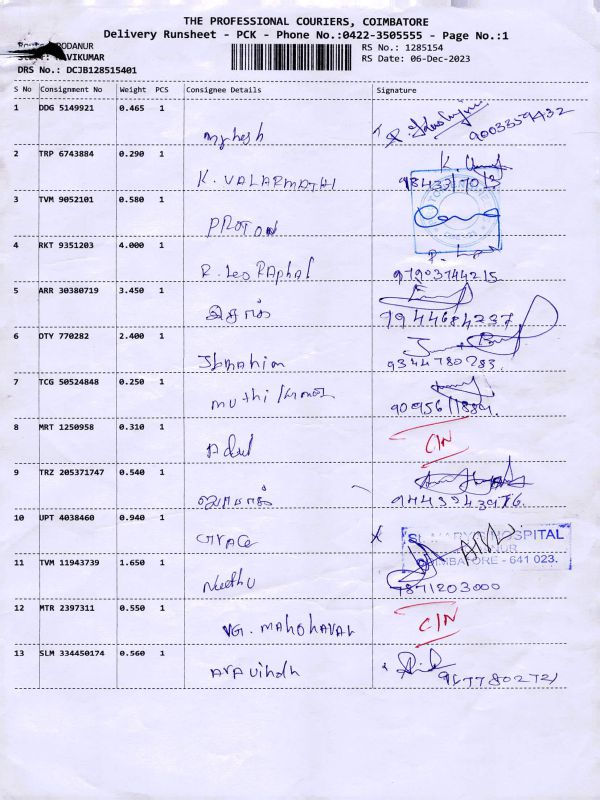 THE PROFESSIONAL COURIERS, COIMBATORE
Delivery Runsheet - PCK - Phone No.:0422-3505555 - Page No.:1
PODANUR
RAVIKUMAR
DRS No.: DCJB128515401
RS No.: 1285154
RS Date: 06-Dec-2023
S No Consignment No Weight PCS Consignee Details Signature
1 DDG 5149921 0.465 1
Mahesh 9003359432
2 TRP 6743884 0.290 1
K. VALARMATHI 9843317013
3 TVM 9052101 0.580 1
PROTON
4 RKT 9351203 4.000 1
R. Leo RAphal 97903744215
5 ARR 30380719 3.450 1
இசாக் 9944684237
6 DTY 770282 2.400 1
Ibrahim 9344780283.
7 TCG 50524848 0.250 1
Muthi Kumar
8 MRT 1250958 0.310 1
Adul C/N
9 TRZ 205371747 0.540 1
9443943976.
10 UPT 4038460 0.940 1
Grace
HOSPITAL
COIMBATORE - 641 023.
11 TVM 11943739 1.650 1
Neethu 9871203000
12 MTR 2397311 0.550 1
VG. MANOHARAN C/N
13 SLM 334450174 0.560 1
Aravindh 9677802721